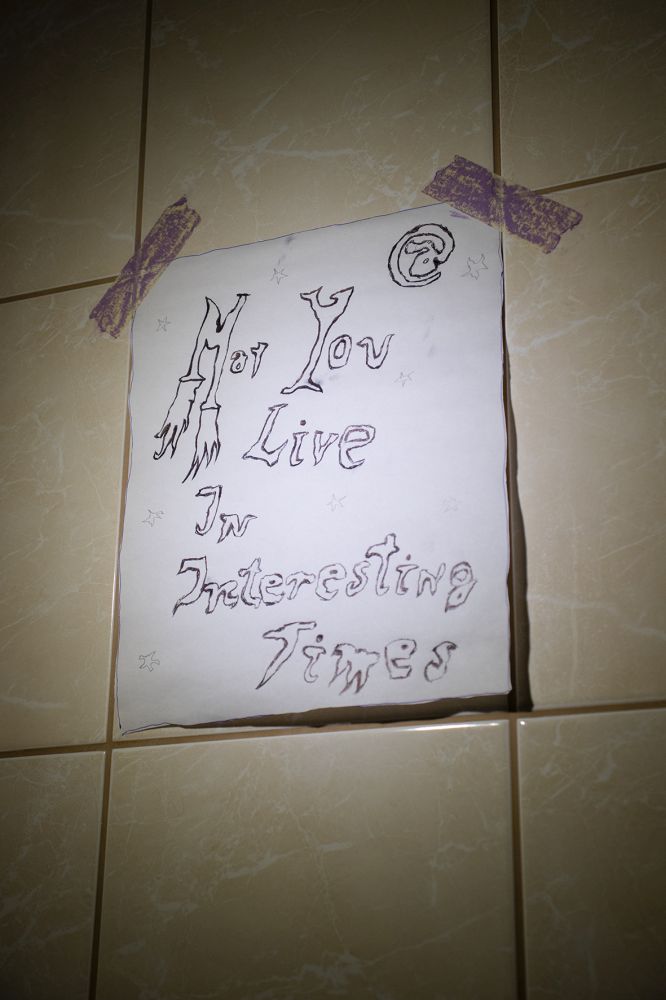 @
May You
Live
In
Interesting
Times